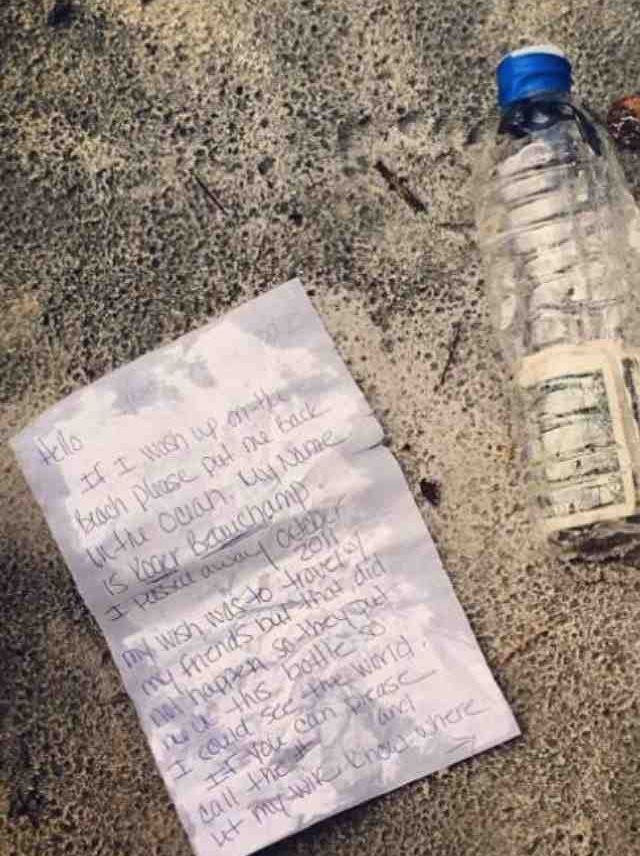 Hello
If I wash up on the
Beach please put me back
in the Ocean. My Name
is Roger Beauchamp.
I passed away October
2011
my wish was to travel w/
my friends but that did
not happen so they put
me in this bottle so
I could see the world.
If you can please
call the # and
let my wife know where